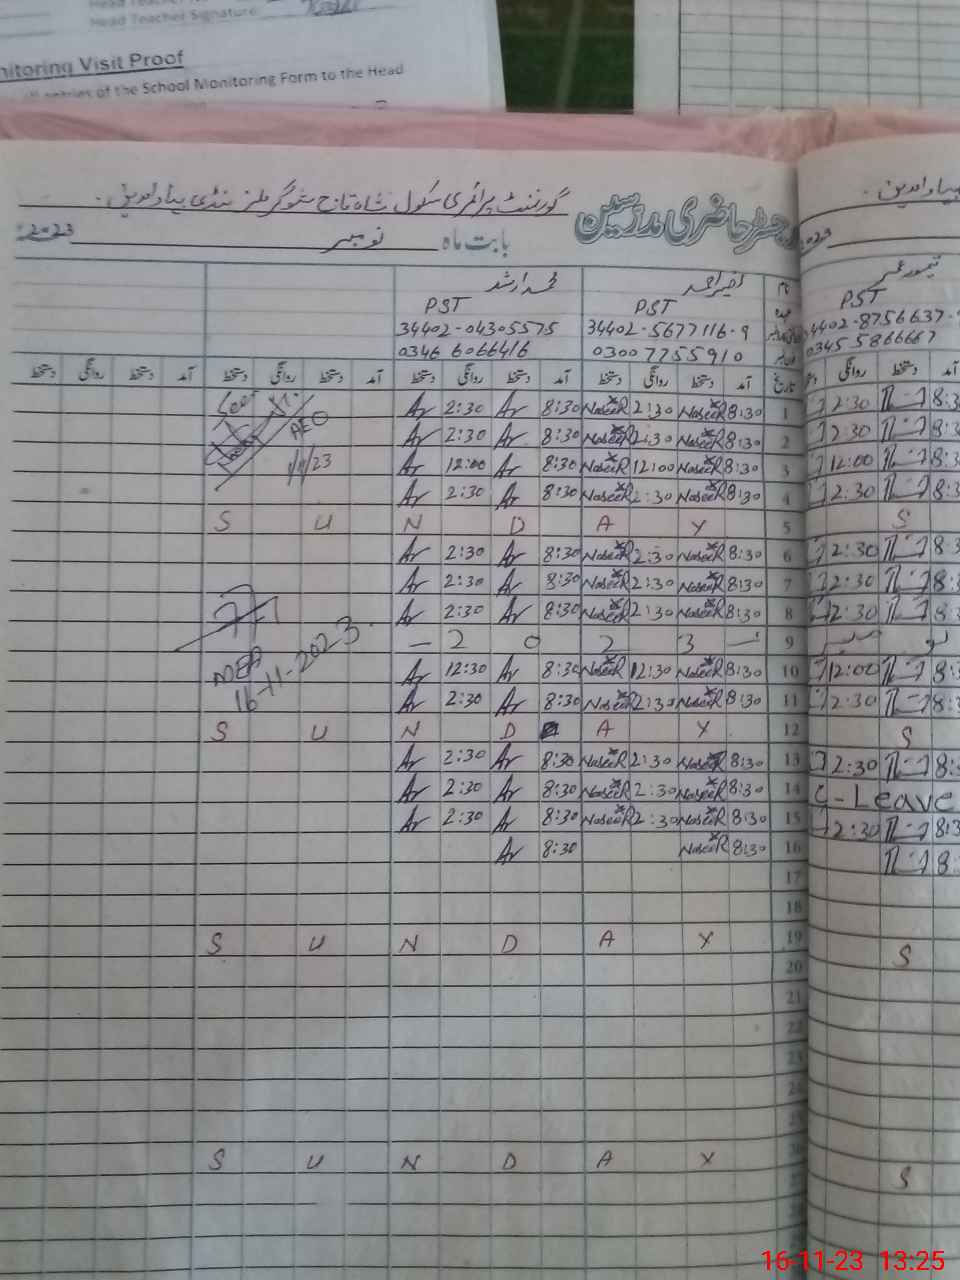 Head Teacher Signature
nitoring Visit Proof
entries of the School Monitoring Form to the Head
رجسٹر حاضری مدرسین گورنمنٹ پرائمری سکول شاہ تاج شوگر ملز منڈی بہاؤالدین۔
بابت ماہ نومبر 2023
نام نصیر احمد محمد ارشد
عہدہ PST PST
34402-5677116-9 34402-04305575
03007755910 0346 6066416
تاریخ آمد دستخط روانگی دستخط آمد دستخط روانگی دستخط آمد دستخط روانگی دستخط آمد دستخط روانگی دستخط
1 8:30 NaseeR 2:30 NaseeR 8:30 Ar 2:30 Ar Seen
2 8:30 NaseeR 2:30 NaseeR 8:30 Ar 2:30 Ar AEO
3 8:30 NaseeR 12:00 NaseeR 8:30 Ar 12:00 Ar 1/11/23
4 8:30 NaseeR 2:30 NaseeR 8:30 Ar 2:30 Ar
5 S U N D A Y
6 8:30 NaseeR 2:30 NaseeR 8:30 Ar 2:30 Ar
7 8:30 NaseeR 2:30 NaseeR 8:30 Ar 2:30 Ar
8 8:30 NaseeR 2:30 NaseeR 8:30 Ar 2:30 Ar
9 – 2 0 2 3 –
10 8:30 NaseeR 12:30 NaseeR 8:30 Ar 12:30 Ar
16-11-2023.
11 8:30 NaseeR 2:30 NaseeR 8:30 Ar 2:30 Ar
12 S U N D A Y
13 8:30 NaseeR 2:30 NaseeR 8:30 Ar 2:30 Ar
14 8:30 NaseeR 2:30 NaseeR 8:30 Ar 2:30 Ar
15 8:30 NaseeR 2:30 NaseeR 8:30 Ar 2:30 Ar
16 8:30 NaseeR 8:30 Ar
17
18
19 S U N D A Y
20
21
22
23
S U N D A Y
2023
تیمور عمر
PST
34402-8756637-
0345 5866667
دستخط روانگی
8:3 2:30
8:3 2:30
8:3 12:00
8:3 2:30
S
8:3 2:30
8:3 2:30
8:3 2:30
نومبر
8:3 12:00
8:3 2:30
S
8: 2:30
C-Leave
8:3 2:30
8:
S
S
16-11-23 13:25